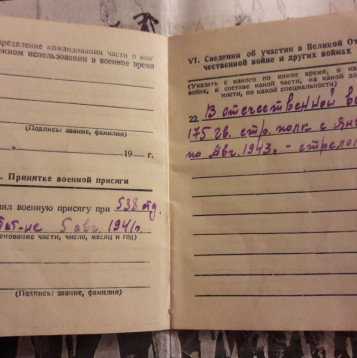 определение командования части о воз
ожном использовании в военное время
(Подпись: звание, фамилия)
19 г.
. Принятие военной присяги
ял военную присягу при 538 отд.
бат-не 5 авг. 1941г.
енование части, число, месяц и год)
(Подпись: звание, фамилия)
VI. Сведения об участии в Великой От
чественной войне и других войнах
(Указать с какого по какое время, в ка
войне, в составе какой части, на какой дол
ности, по какой специальности)
22. В отечественной в
175 гв. стр. полк с Янв
по Авг. 1943. - стрелок